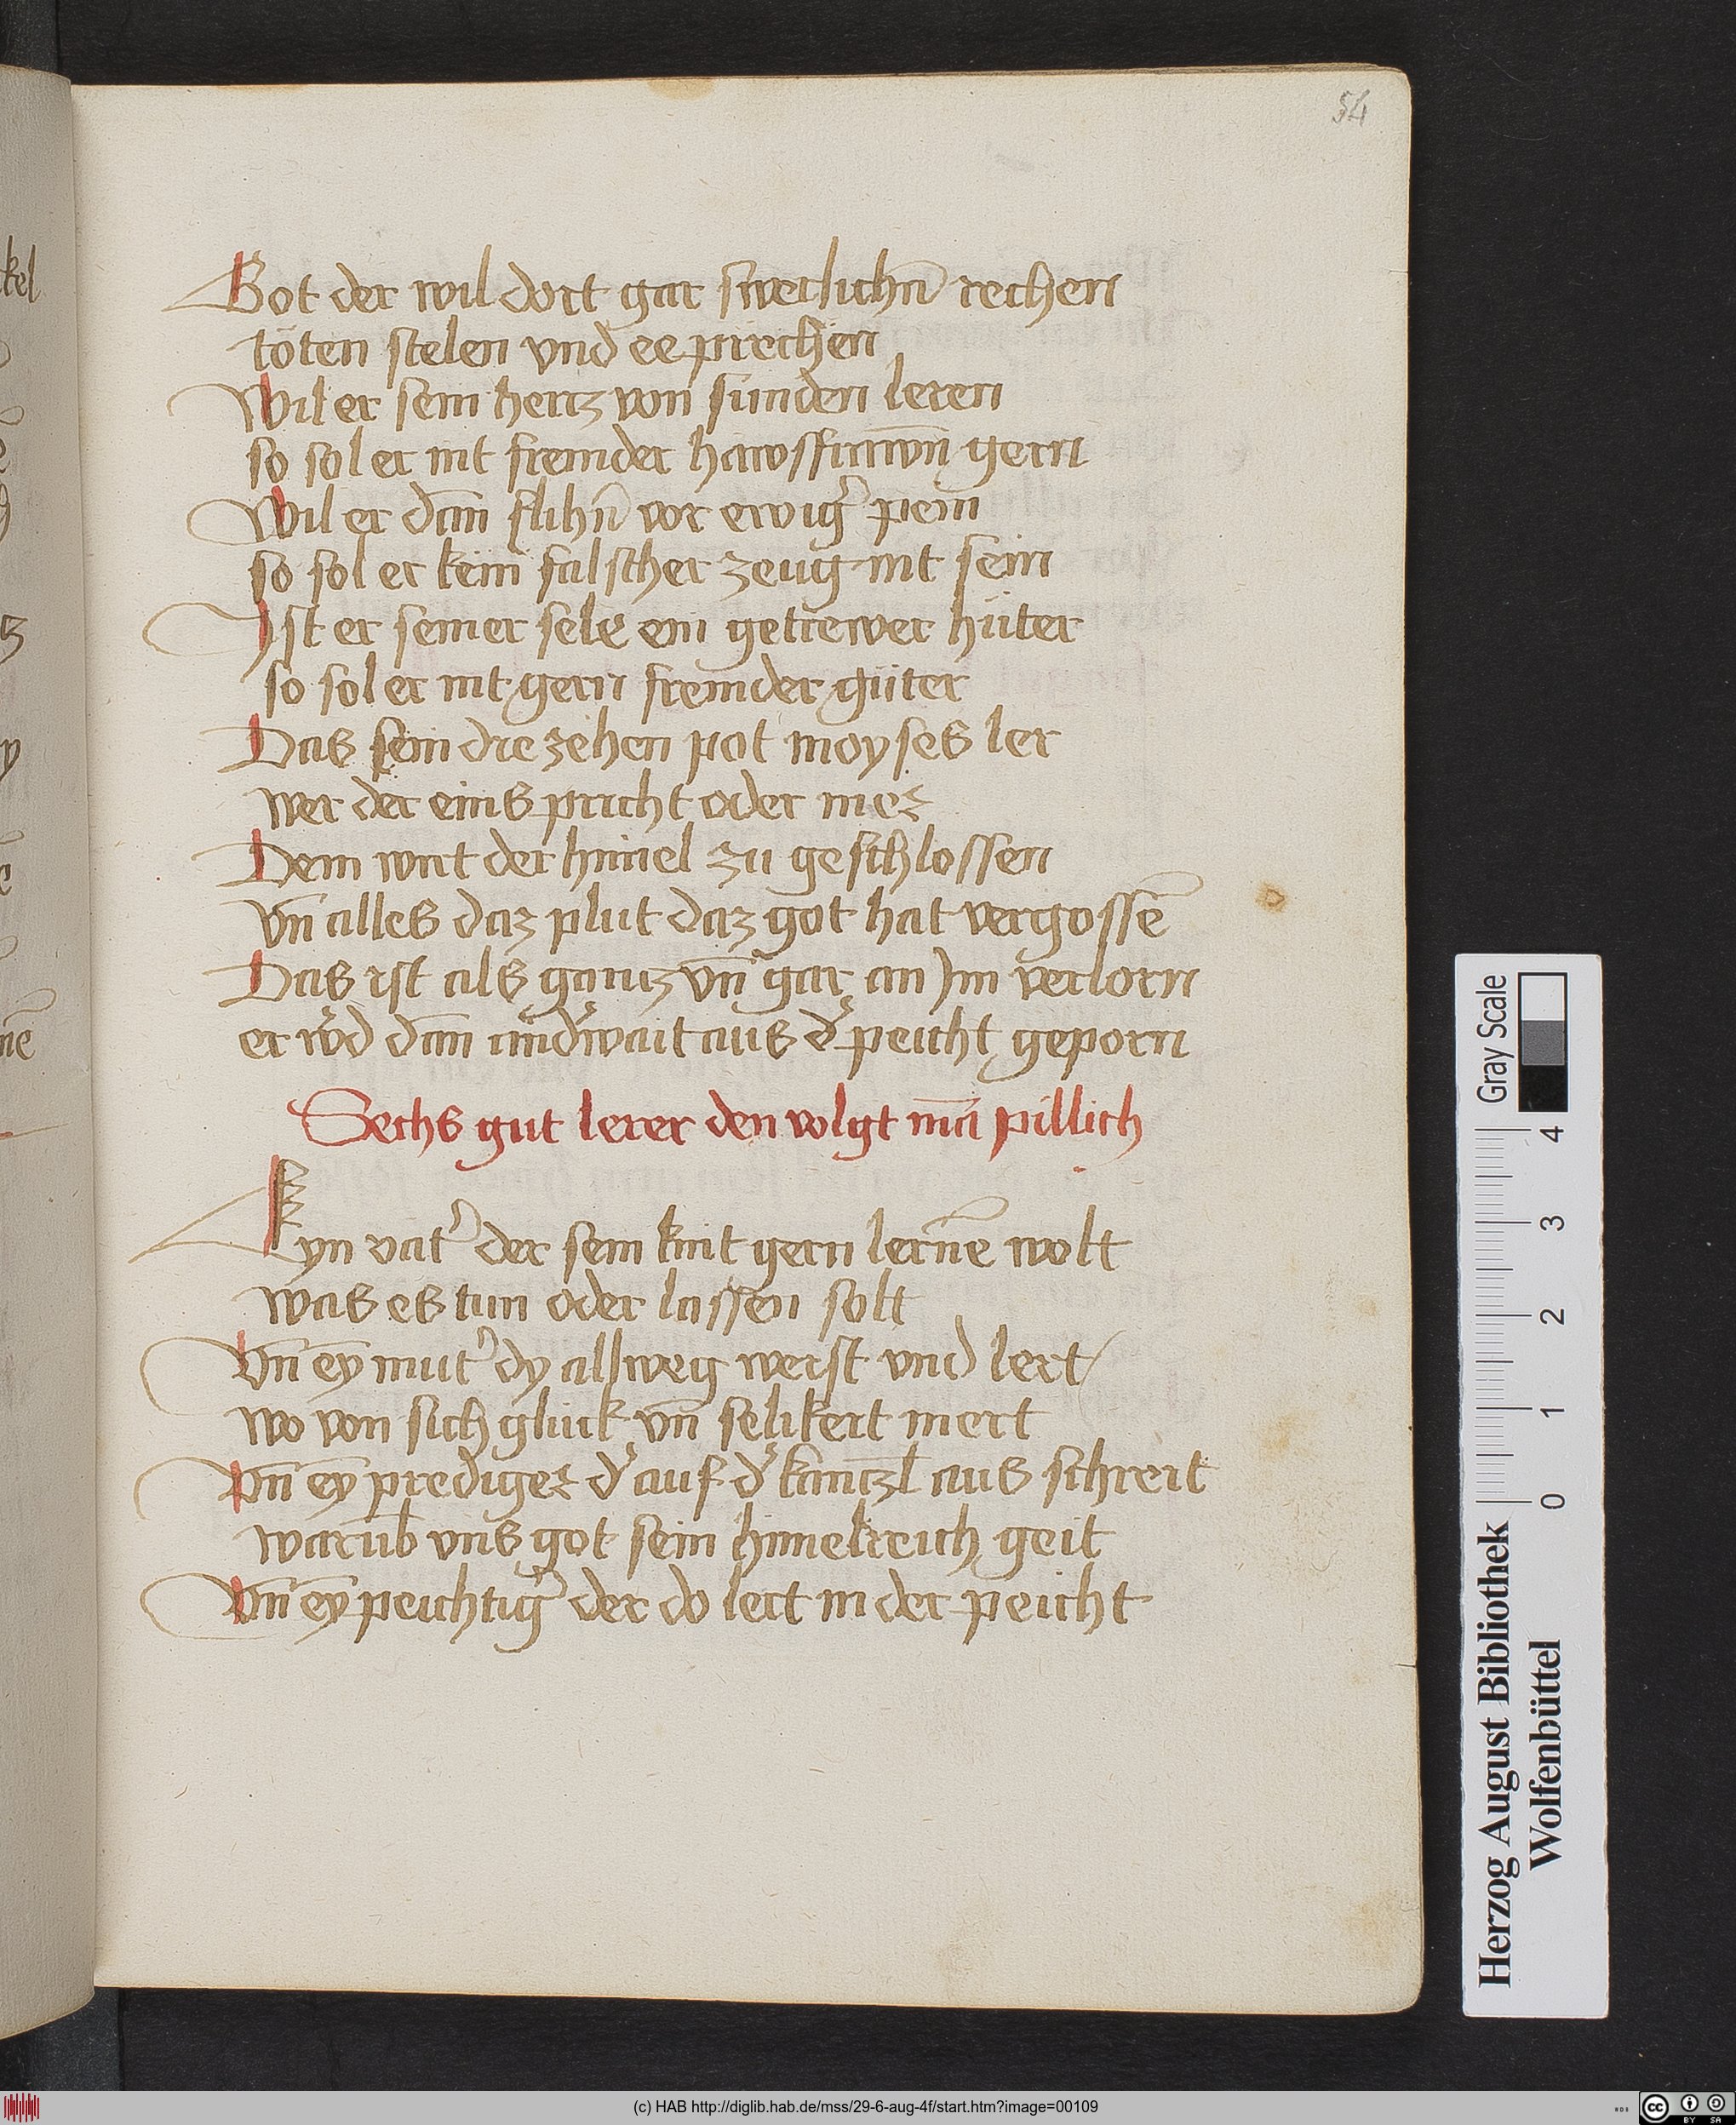 54
Got der wil dort gar swerlichn̄ rechen
töten stelen vnd ee prechen
Wil er sein hertz von sunden leren
so sol er nit fremder hawsfrawn̄ gern
Wil er dan̄ flihn̄ vor ewig᾽ pein
so sol er kein falscher zeug nit sein
Ist er seiner sele ein getrewer hüter
so sol er nit gern fremder güter
Das sein die zehen pot moyses ler
wer der eins pricht oder mer
Dem wirt der himel zu geschlossen
vn̄ alles daz plut daz got hat vergossē
Das ist als gantz vn̄ gar an Im verlorn
er w᾽d dan̄ and᾽wait aus d᾽ peicht geporn
Sechs gut lerer den volgt mā pillich
Eyn vat᾽ der sein kint gern lernē wolt
was es tun oder lassen solt
Vn̄ eȳ mut᾽ dy allweg weist vnd lert
wo von sich gluck vn̄ selikeit mert
Vn̄ eȳ prediger d᾽ auf d᾽ kantzl aus schreit
warūb vns got sein himelreich geit
Vn̄ eȳ peichtig᾽ der do lert in der peicht
kel
Gray Scale
4
3
2
1
0
Herzog August Bibliothek
Wolfenbüttel
(c) HAB http://diglib.hab.de/mss/29-6-aug-4f/start.htm?image=00109
CC BY SA